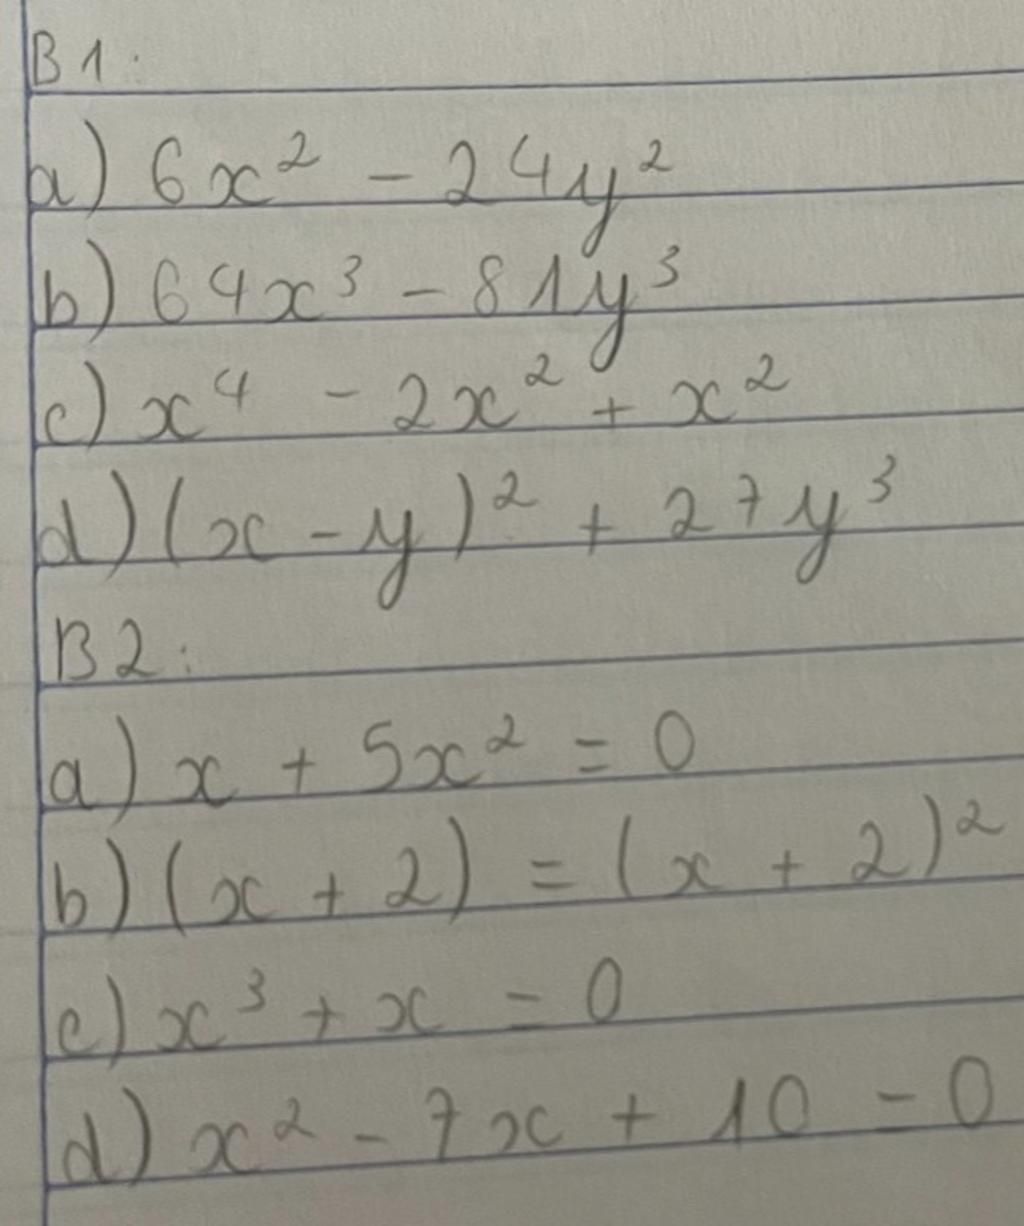 B1:
a) 6x² - 24y²
b) 64x³ - 81y³
c) x⁴ - 2x² + x²
d) (x - y)² + 27y³
B2:
a) x + 5x² = 0
b) (x + 2) = (x + 2)²
c) x³ + x = 0
d) x² - 7x + 10 - 0